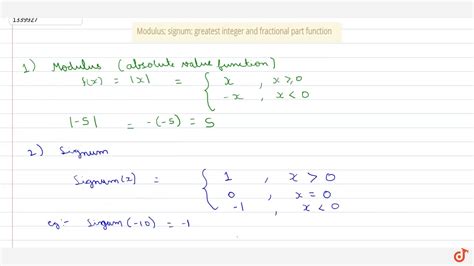 1339927
Modulus; signum; greatest integer and fractional part function
1) Modulus (absolute value function)
f(x) = |x| = { x , x ≥ 0
-x , x < 0
|-5| = -(-5) = 5
2) Signum
Signum(x) = { 1 , x > 0
0 , x = 0
-1 , x < 0
eg:- Signum (-10) = -1